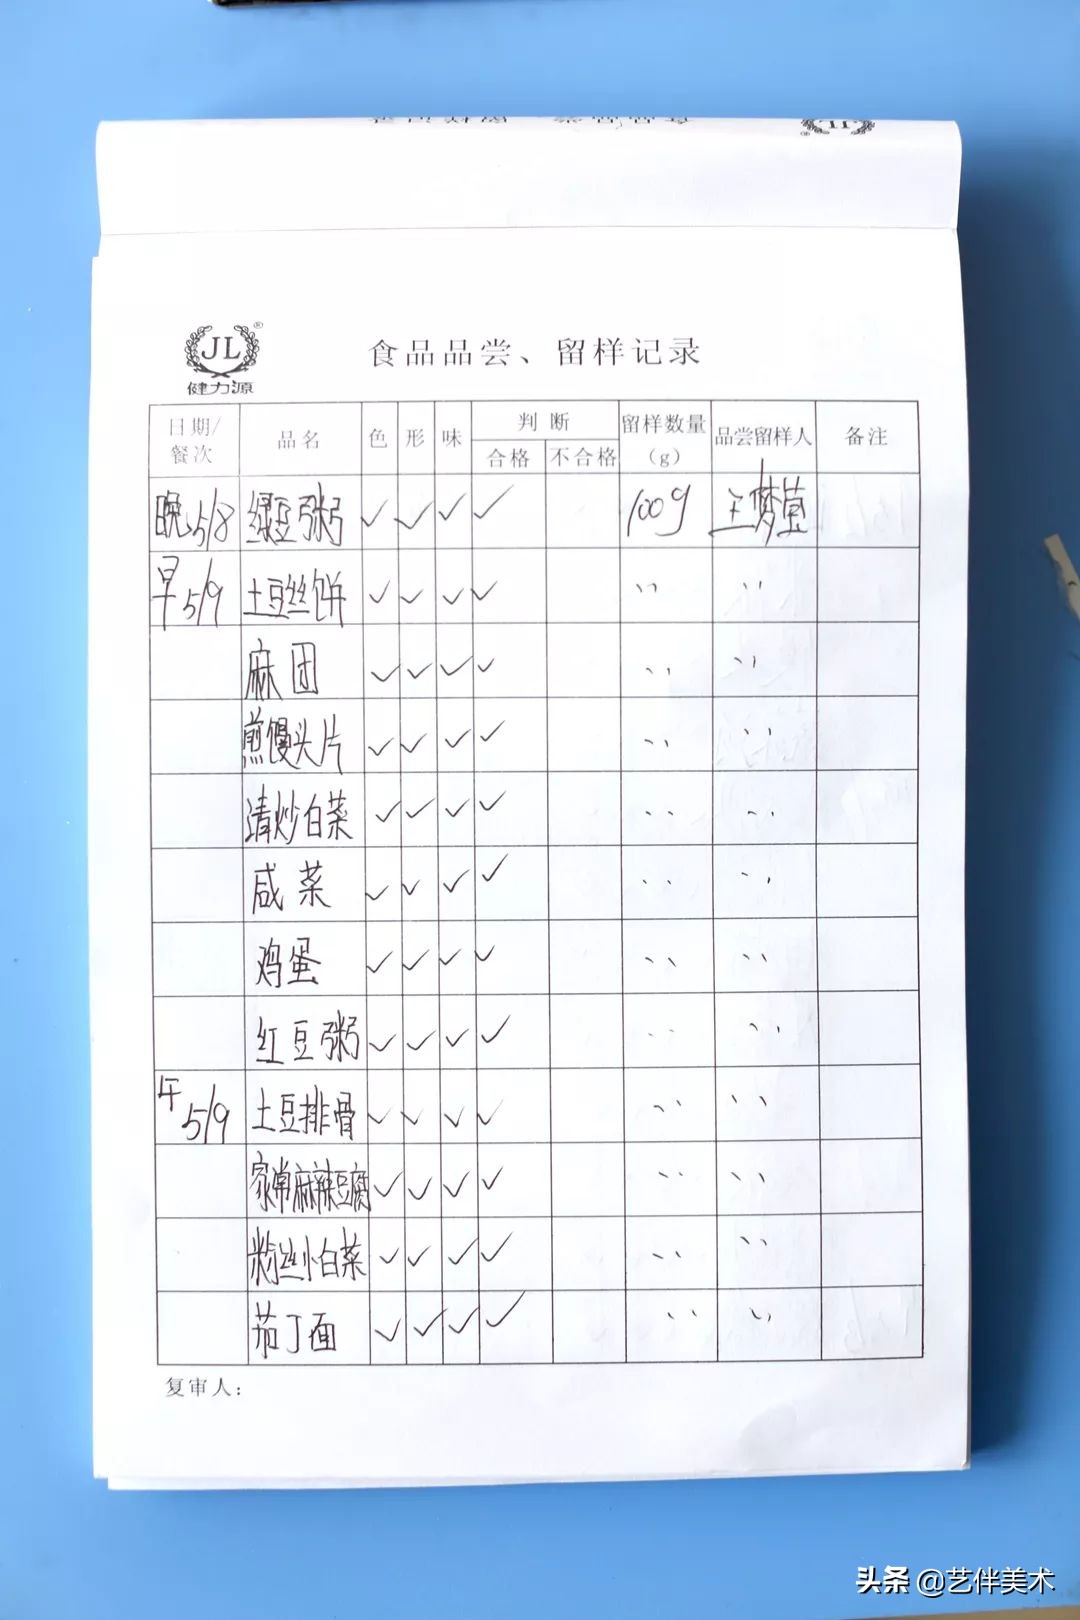 JL
健力源
食品品尝、留样记录
日期/餐次 品名 色 形 味 判断 合格 不合格 留样数量(g) 品尝留样人 备注
晚5/8 绿豆粥 ✓ ✓ ✓ ✓ 100g
早5/9 土豆丝饼 ✓ ✓ ✓ ✓ 〃 〃
麻团 ✓ ✓ ✓ ✓ 〃 〃
煎馒头片 ✓ ✓ ✓ ✓ 〃 〃
清炒白菜 ✓ ✓ ✓ ✓ 〃 〃
咸菜 ✓ ✓ ✓ ✓ 〃 〃
鸡蛋 ✓ ✓ ✓ ✓ 〃 〃
红豆粥 ✓ ✓ ✓ ✓ 〃 〃
午5/9 土豆排骨 ✓ ✓ ✓ ✓ 〃 〃
家常麻辣豆腐 ✓ ✓ ✓ ✓ 〃 〃
粉丝小白菜 ✓ ✓ ✓ ✓ 〃 〃
茄丁面 ✓ ✓ ✓ ✓ 〃 〃
复审人：
头条 @艺伴美术